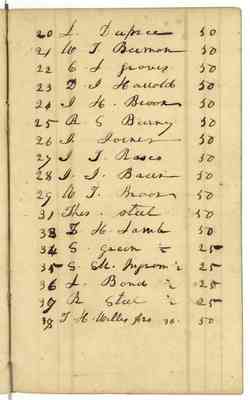 20 L. Dupree 50
21 W T. Beeman 50
22 C. L groves 50
23 D. I Harrold 50
24 J H. Broom 50
25 R S Burney 50
26 Joiner 50
27 J. J. Rasco 50
28 J. J. Bacon 50
29 W T. Broom 50
31 Thos. Steel 50
33 T H Lamb 50
34 S. green ½ 25
35 S. M. Ingrom ½ 25
36 L. Bond ½ 25
37 R Steel ½ 25
38 T. H. Willis 50